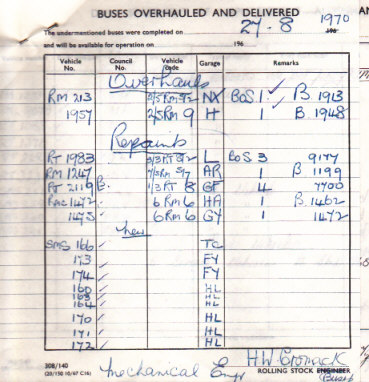 BUSES OVERHAULED AND DELIVERED
The undermentioned buses were completed on 27-8 1970
and will be available for operation on 196
Vehicle No. Council No. Vehicle Code Garage Remarks
Overhauls
RM 213 NX BoS 1 B 1913
1957 2/5 RM 9 H 1 B 1948
Repaints
RT 1983 L BoS 3 9177
RM 1247 AR 1 B 1199
RT 2119 1/3 RT 8 GF 4 7700
RMC 1472 6 RM 6 HA 1 B 1462
1475 6 RM 6 GY 1 1472
New
SMS 166 TC
173 FY
174 FY
160 HL
163 HL
164 HL
170 HL
171 HL
172 HL
308/140
(20/150 10/67 C16)
Mechanical Engr
ROLLING STOCK ENGINEER
(Buses)